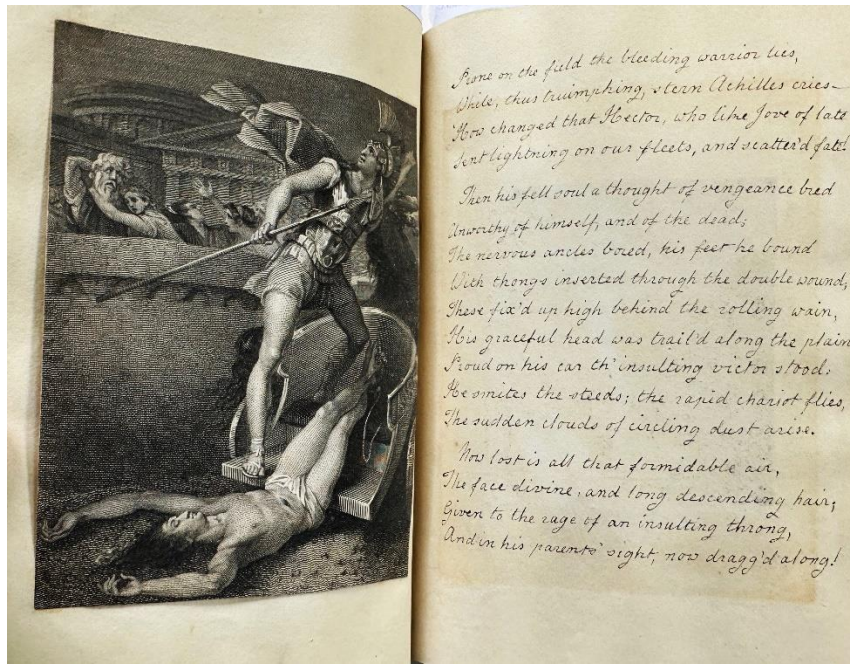 Prone on the field the bleeding warrior lies,
While, thus truimphing, stern Achilles cries—
How changed that Hector, who like Jove of late
Sent lightning on our fleets, and scatter'd fate!
Then his fell soul a thought of vengeance bred
Unworthy of himself, and of the dead;
The nervous ancles bored, his feet he bound
With thongs inserted through the double wound;
These fix'd up high behind the rolling wain,
His graceful head was trail'd along the plain
Proud on his car th' insulting victor stood.
He smites the steeds; the rapid chariot flies,
The sudden clouds of circling dust arise.
Now lost is all that formidable air,
The face divine, and long descending hair;
Given to the rage of an insulting throng,
And in his parents' sight, now dragg'd along!